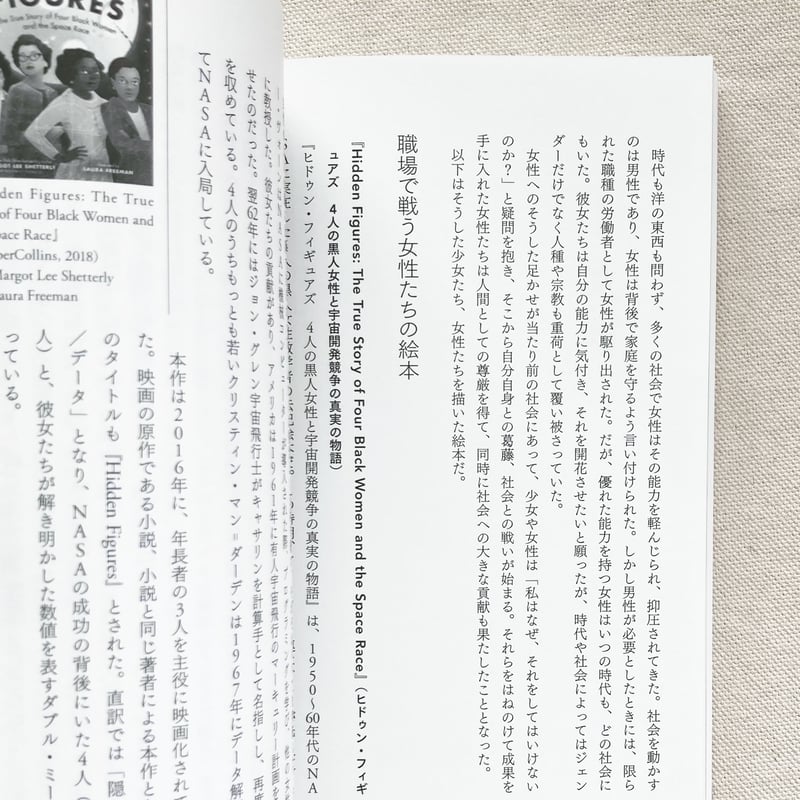 時代も洋の東西も問わず、多くの社会で女性はその能力を軽んじられ、抑圧されてきた。社会を動かす
のは男性であり、女性は背後で家庭を守るよう言い付けられた。しかし男性が必要としたときには、限ら
れた職種の労働者として女性が駆り出された。だが、優れた能力を持つ女性はいつの時代も、どの社会に
もいた。彼女たちは自分の能力に気付き、それを開花させたいと願ったが、時代や社会によってはジェン
ダーだけでなく人種や宗教も重荷として覆い被さっていた。
女性へのそうした足かせが当たり前の社会にあって、少女や女性は「私はなぜ、それをしてはいけない
のか?」と疑問を抱き、そこから自分自身との葛藤、社会との戦いが始まる。それらをはねのけて成果を
手に入れた女性たちは人間としての尊厳を得て、同時に社会への大きな貢献も果たしたこととなった。
以下はそうした少女たち、女性たちを描いた絵本だ。
職場で戦う女性たちの絵本
『Hidden Figures: The True Story of Four Black Women and the Space Race』（ヒドゥン・フィギ
ュアズ 4人の黒人女性と宇宙開発競争の真実の物語）
『ヒドゥン・フィギュアズ 4人の黒人女性と宇宙開発競争の真実の物語』は、1950〜60年代のNA
に教授した。彼女たちの貢献があり、アメリカは1961年に有人宇宙飛行のマーキュリー計画を
せたのだった。翌62年にはジョン・グレン宇宙飛行士がキャサリンを計算手として名指しし、再度
を収めている。4人のうちもっとも若いクリスティン・マン=ダーデンは1967年にデータ解
てNASAに入局している。
FIGURES
The True Story of Four Black Women
and the Space Race
MARGOT LEE SHETTERLY
LAURA FREEMAN
den Figures: The True
of Four Black Women and
pace Race』
perCollins, 2018）
Margot Lee Shetterly
aura Freeman
本作は2016年に、年長者の3人を主役に映画化されて
た。映画の原作である小説、小説と同じ著者による本作と
のタイトルも『Hidden Figures』とされた。直訳では「隠
／データ」となり、NASAの成功の背後にいた4人（
人）と、彼女たちが解き明かした数値を表すダブル・ミー
っている。